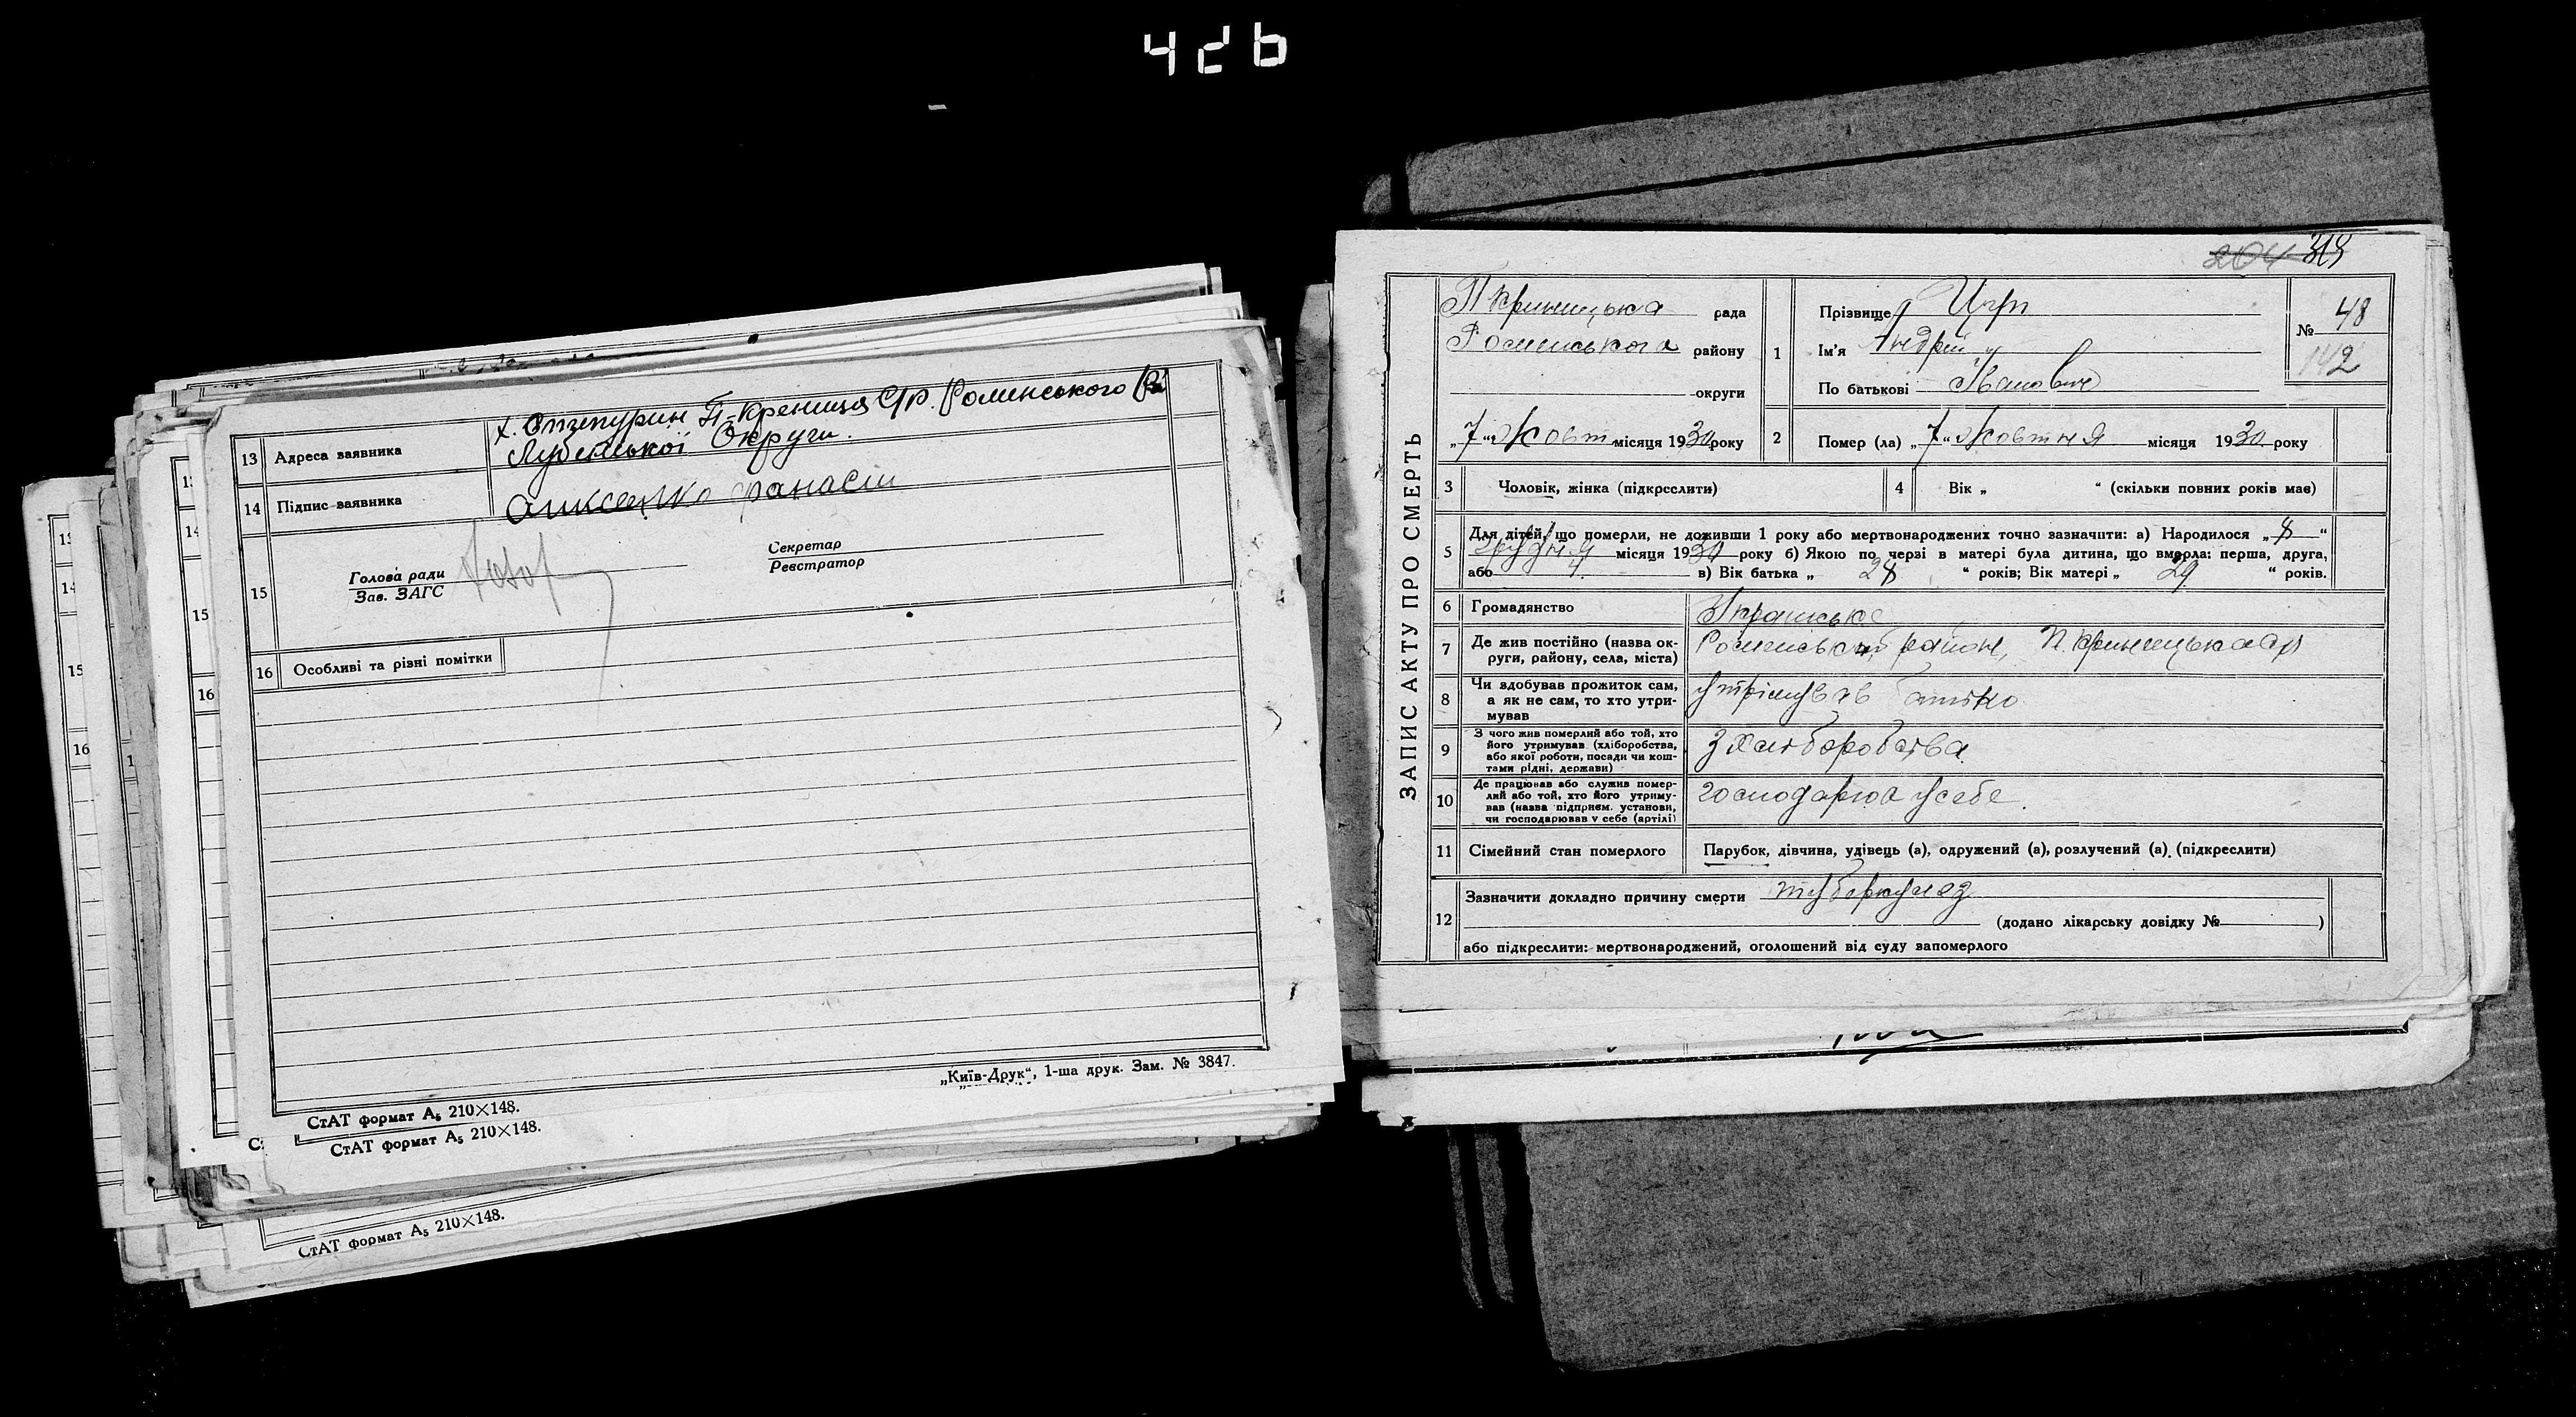 426
13 Адреса заявника
Округи.
14 Підпис заявника
15
Голова ради
Зав. ЗАГС
Секретар
Реєстратор
16 Особливі та різні помітки
„Київ-Друк“, 1-ша друк. Зам. № 3847.
СтАТ формат А₅ 210×148.
СтАТ формат А₅ 210×148.
СтАТ формат А₅ 210×148.
ЗАПИС АКТУ ПРО СМЕРТЬ
П Криницька рада
Роменського району
округи
„7“ Жовт місяця 1930 року
1 Прізвище
Ім'я Андрій
По батькові Іванович
№ 48
142
2 Помер (ла) „7“ Жовтня місяця 1930 року
3 Чоловік, жінка (підкреслити)
4 Вік „ “ (скільки повних років має)
5 Для дітей, що померли, не доживши 1 року або мертвонароджених точно зазначити: а) Народилося „8“
грудня місяця 1930 року б) Якою по черзі в матері була дитина, що вмерла: перша, друга,
або 4 в) Вік батька „ 28 “ років; Вік матері „ 29 “ років.
6 Громадянство Українське
7 Де жив постійно (назва ок-
руги, району, села, міста) район, П. Криницька с/р
8 Чи здобував прожиток сам,
а як не сам, то хто утри-
мував утрімував батько
9 З чого жив померлий або той, хто
його утримував (хліборобства,
або якої роботи, посади чи кош-
тами рідні, держави) З хліборобства
10 Де працював або служив помер-
лий або той, хто його утриму-
вав (назва підприєм. установи,
чи господарював у себе (артілі) господарюв у себе.
11 Сімейний стан померлого Парубок, дівчина, удівець (а), одружений (а), розлучений (а). (підкреслити)
12 Зазначити докладно причину смерти туберкульоз
(додано лікарську довідку № )
або підкреслити: мертвонароджений, оголошений від суду запомерлого